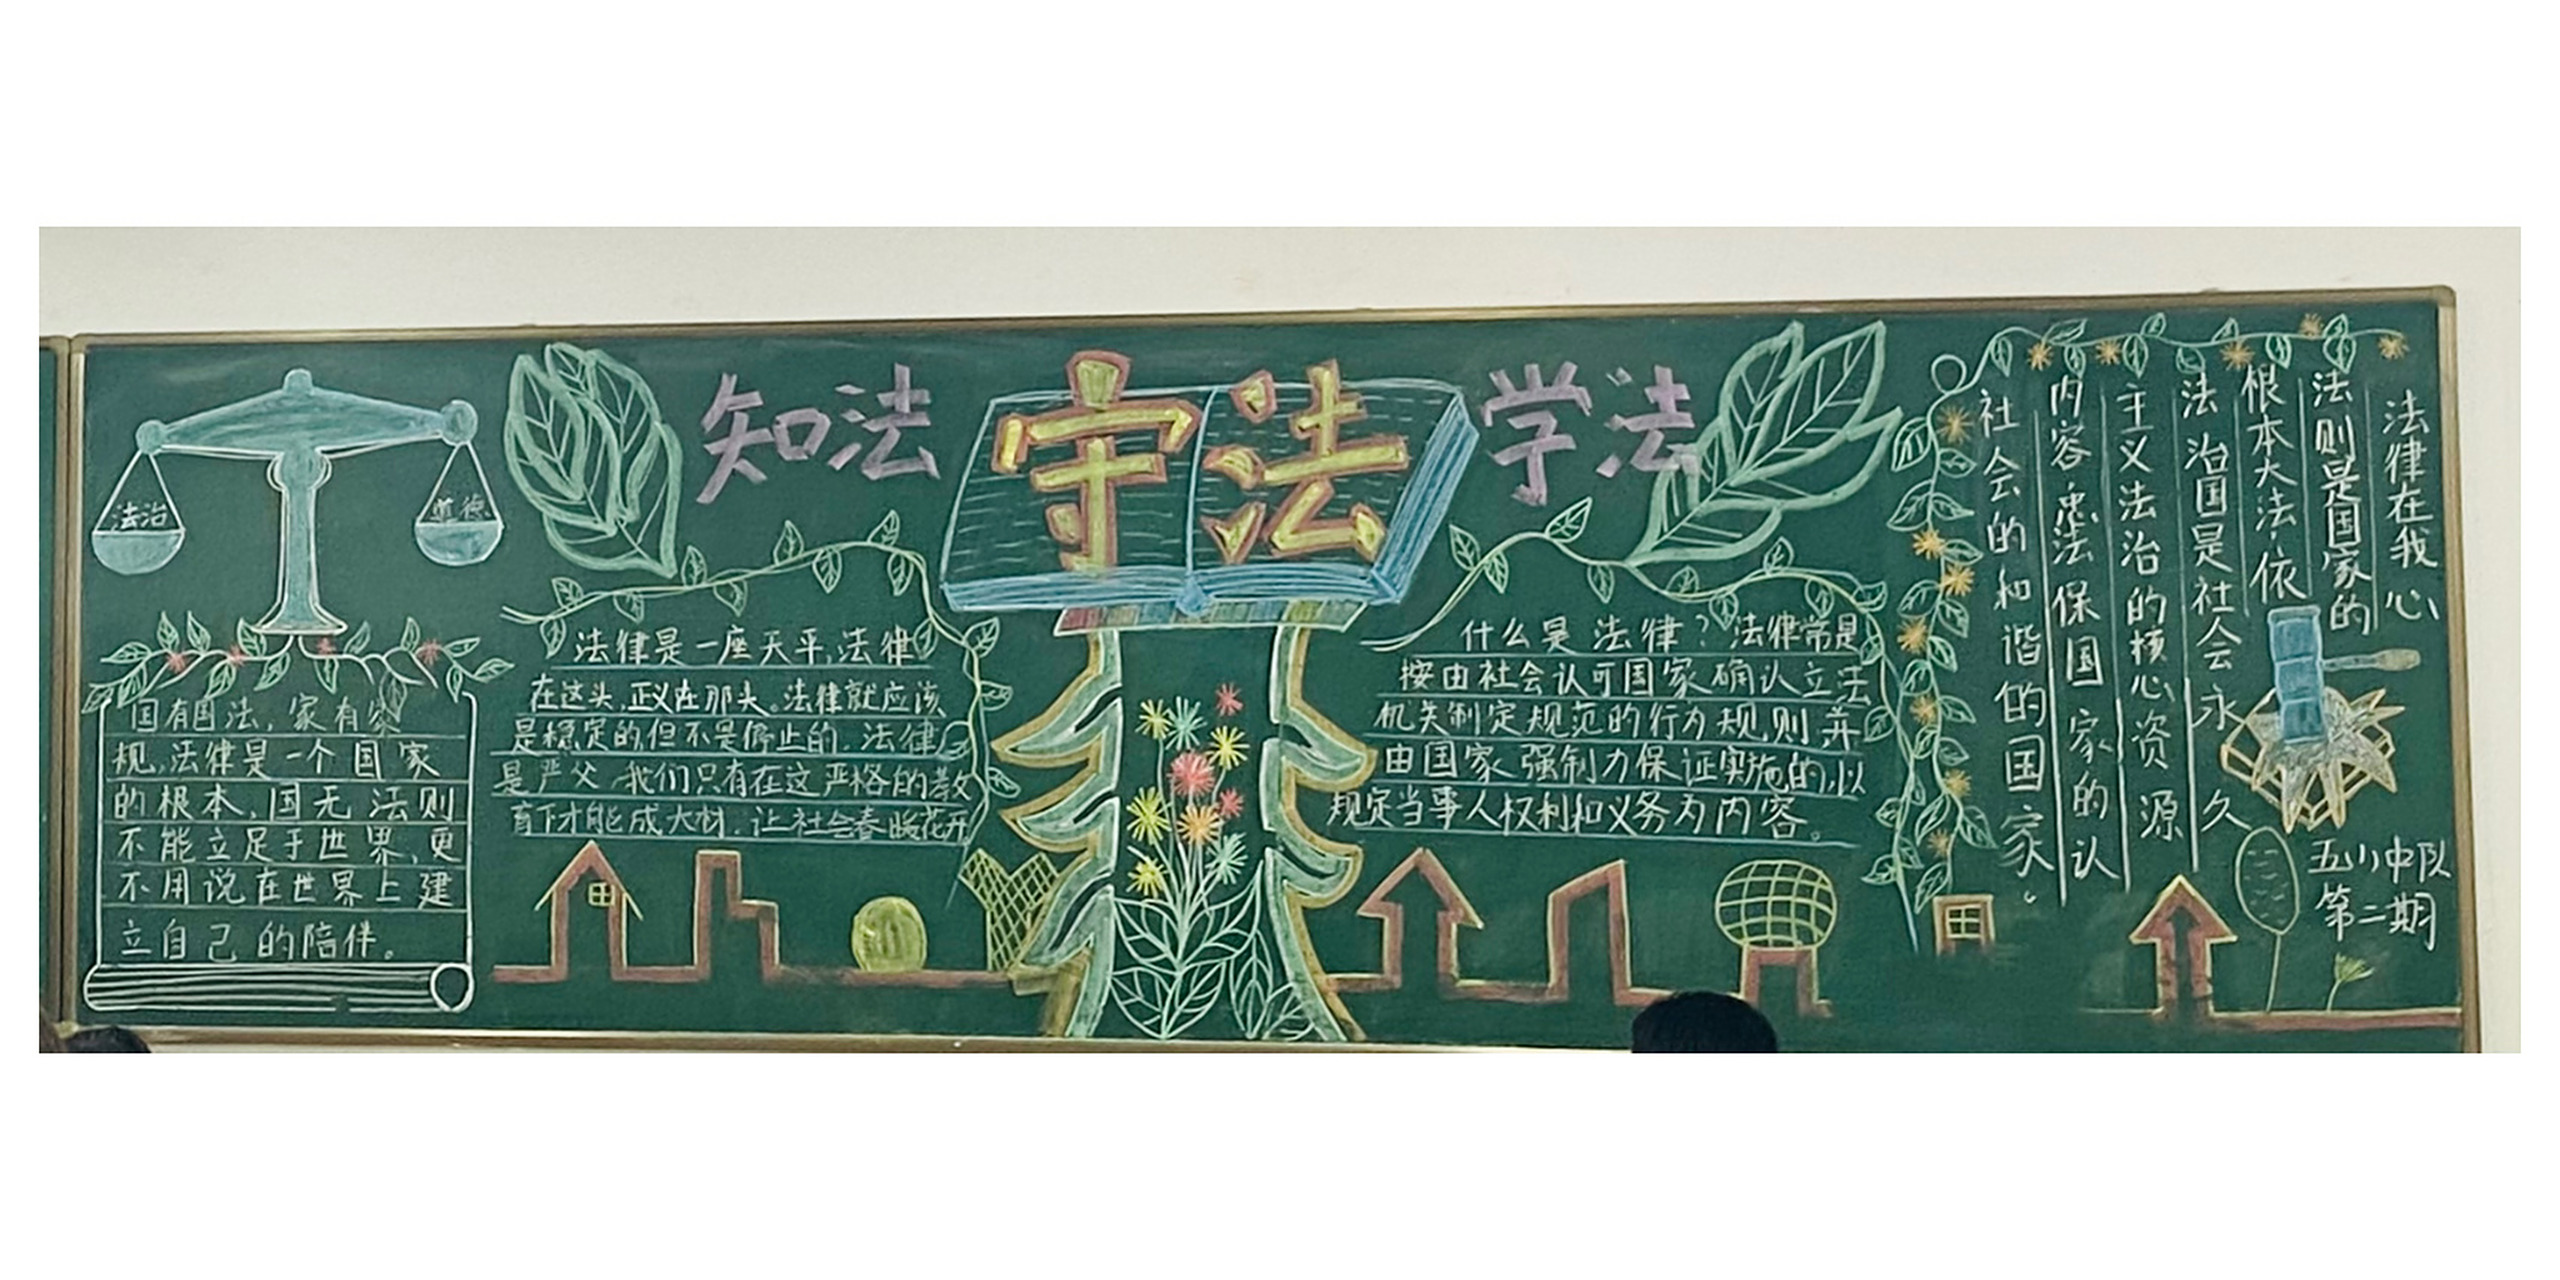 知法 守法 学法
法治
道德
国有国法,家有家
规,法律是一个国家
的根本,国无法则
不能立足于世界,更
不用说在世界上建
立自己的陪伴。
法律是一座天平,法律
在这头,正义在那头。法律就应该
是稳定的,但不是停止的.法律
是严父,我们只有在这严格的教
育下才能成大材.让社会春暖花开
什么是法律?法律常是
按由社会认可国家确认立法
机关制定规范的行为规则,并
由国家强制力保证实施的,以
规定当事人权利和义务为内容。
法律在我心
法则是国家的
根本大法,依
法治国是社会永久
主义法治的核心资源
内容,忠法保国家的认
社会的和谐的国家。
五小中队
第二期